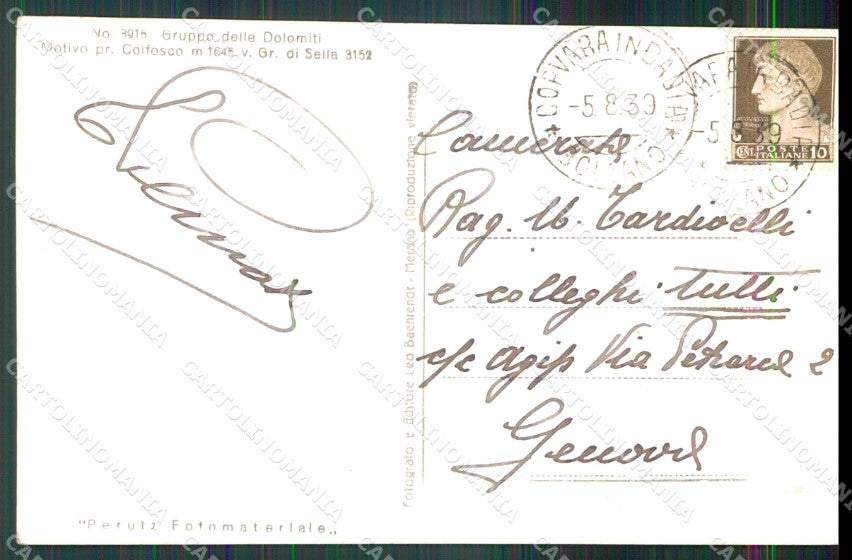 No. 3915 Gruppo delle Dolomiti
Motivo pr. Colfosco m 1645 v. Gr. di Sella 3152
"Perutz Fotomateriale"
Fotografo e Editore Leo Baehrendt - Merano (Riproduzione vietata)
CORVARA IN BADIA
-5.8.39
BOLZANO
-5.8.39
POSTE
ITALIANE
CENT. 10
Camerata
Rag. U. Tardivelli
e colleghi tutti
c/c Agip Via Petrarca 2
Genova
CARTOLINOMANIA